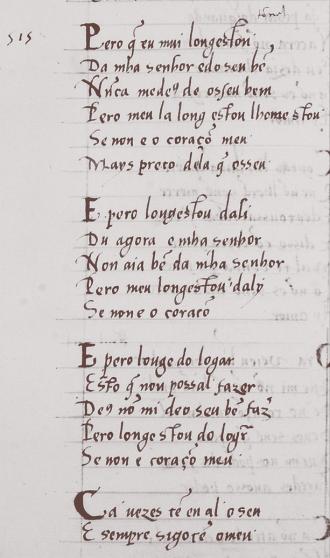 tornel
515
Pero q̃ eu mui longestou
Da mha senhor edo seu bẽ
Nũca mede9 de osseu bem
Pero meu la long estou lhome stou
Se non e o coraçõ meu
Mays preto dela q̃ osseu
E pero longestou dali
Du agora e mha senhor
Non aia bẽ da mha senhor
Pero meu longestou daly
Se non e o coraçõ
E pero longe do logar
Esto q̃ nou possal fazer
De9 nõ mi deo seu bẽ faz
Pero longe stou do logr̃
Se non e coraçõ meu
Ca uezes tẽ en al o sen
E sempre sigo tẽ o meu